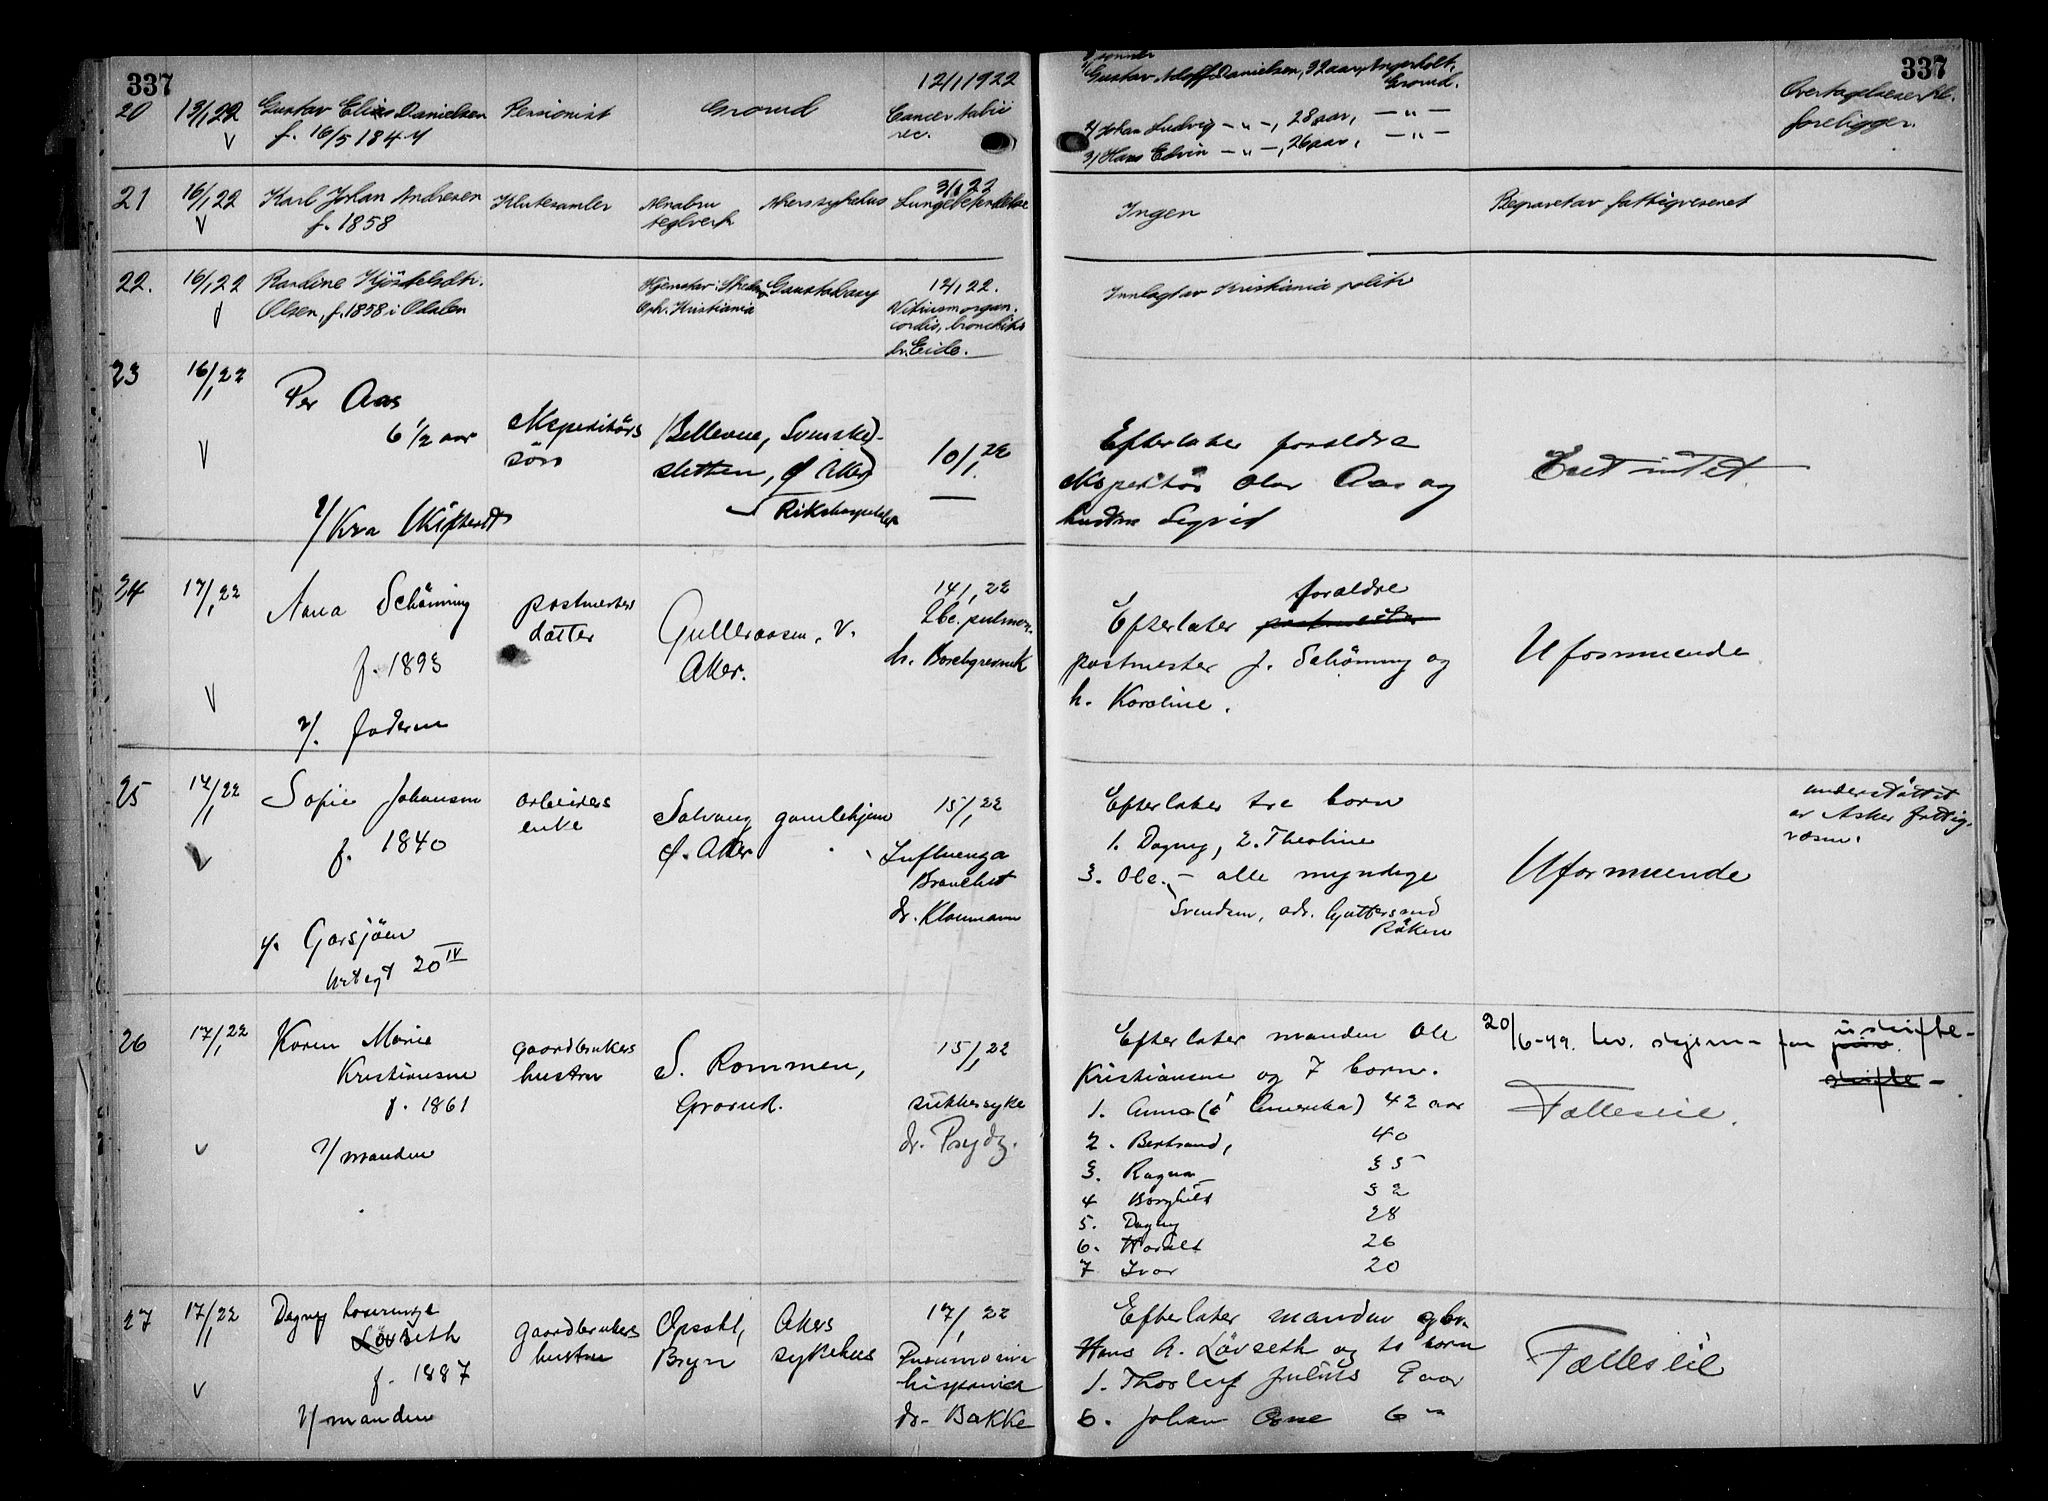 337
337
20 13/1 22 Gustav Elias Danielsen Pensionist Grorud 12/1 1922
f. 16/5 1844 Cancer labii
rec.
1/ Gustav Adolf Danielsen, 32 aar,
Grorud.
2/ Johan Ludvig — " —, 28 aar, — " —
3/ Hans Edvin — " —, 26 aar, — " —
Overtagelseserkl.
foreligger.
21 16/1 22 Karl Johan Andresen Klutesamler Alnabru Akers sykehus 3/1 22
f. 1858 teglverk
Ingen
Begravet av fattigvesenet
22. 16/1 22 Karoline
Olsen, f. 1858 i Odalen
Oph. Kristiania Gaustad asyl 12/1 22.
Vitium organ.
cordis, bronchitis
dr. Eide.
Innlagt av Kristiania politi
23 16/1 22 Per Aas
6 1/2 aar
Ekspeditörs
sön
Bellevue, Svenske-
sletten, Ø. Aker
Rikshospitalet
10/1 22
v/ Kra Skifterett
Efterlater foreldre
ekspeditör Olav Aas og
hustru Sigrid
Eiet intet.
24 17/1 22 Anna Schönning
f. 1893
v/. faderen
postmesters
datter
Gulleraasen, V.
Aker.
14/1 22
Tbc. pulmon.
dr. Borchgrevink
foreldre
Efterlater postmester
postmester J. Schönning og
h. Karoline.
Uformuende
25 17/1 22 Sofie Johansen
f. 1840
arbeiders
enke
Solvang gamlehjem
Ø. Aker
15/1 22
Influenza
Bronchit
dr. Kloumann
v. Garsjöen
20 IV
Efterlater tre born
1. Dagny, 2. Theoline
3. Ole. — alle myndige
Svendsen, adr. Gyttersand
Röken
Uformuende
understöttet
av Asker fattig-
væsen.
26 17/1 22 Karen Marie
Kristiansen
f. 1861
v/ manden
gaardbrukers
hustru
S. Rommen,
Grorud.
15/1 22
sukkersyke
dr.
Efterlater manden Ole
Kristiansen og 7 born.
1. Anna (i Amerika) 42 aar
2. Bertrand, 40
3. Ragna 35
4 Borghild 32
5. Dagny 28
6. Harald 26
7 Ivar 20
20/6-49. lev. skjema for uskifte-
skifte-
Fælleseie.
27 17/1 22 Dagny
Lövseth
f. 1887
v/ manden
gaardbrukers
hustru
Opsahl,
Bryn
Akers
sykehus
17/1 22
Pneumonia
hispanica
dr. Bakke
Efterlater manden gbr.
Hans A. Lövseth og to born
1. Thorleif Julius 9 aar
2. Johan Arne 6 "
Fælleseie